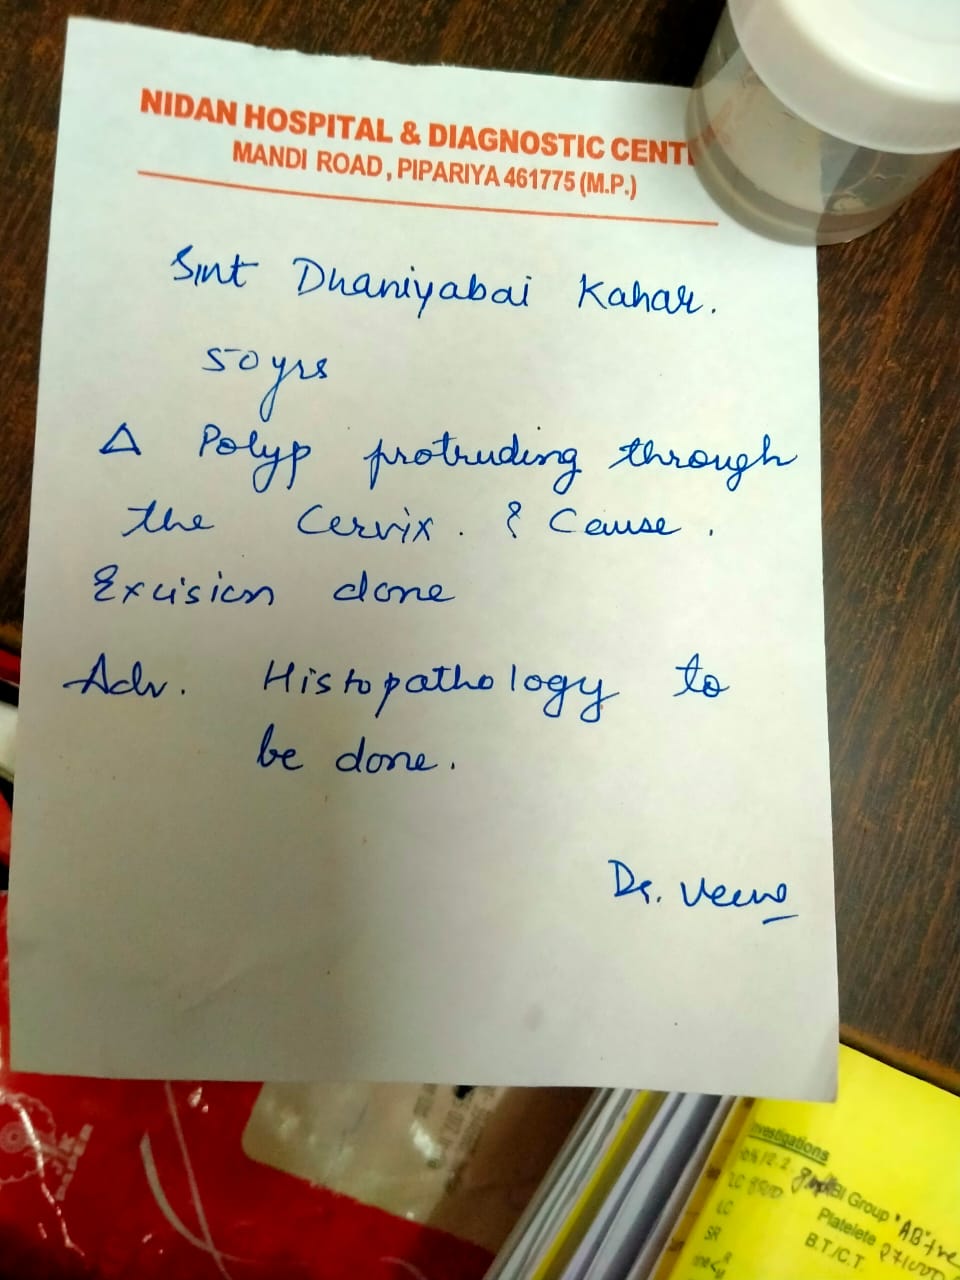 NIDAN HOSPITAL & DIAGNOSTIC CENT
MANDI ROAD, PIPARIYA 461775 (M.P.)
Smt Dhaniyabai Kahar.
50 yrs
Δ Polyp protruding through
the Cervix. ? Cause.
Excision done
Adv. Histopathology to
be done.
Dr. Veena
Investigations
Bl Group "AB"+ve
Platelete
B.T./C.T.